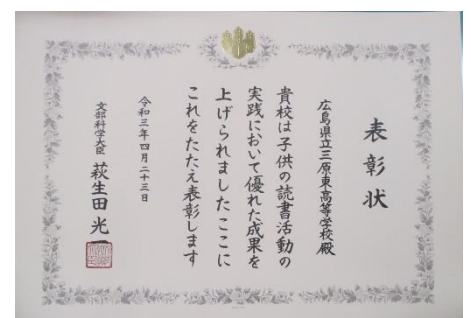 表彰状
広島県立三原東高等学校殿
貴校は子供の読書活動の
実践において優れた成果を
上げられましたここに
これをたたえ表彰します
令和三年四月二十三日
文部科学大臣 萩生田光一